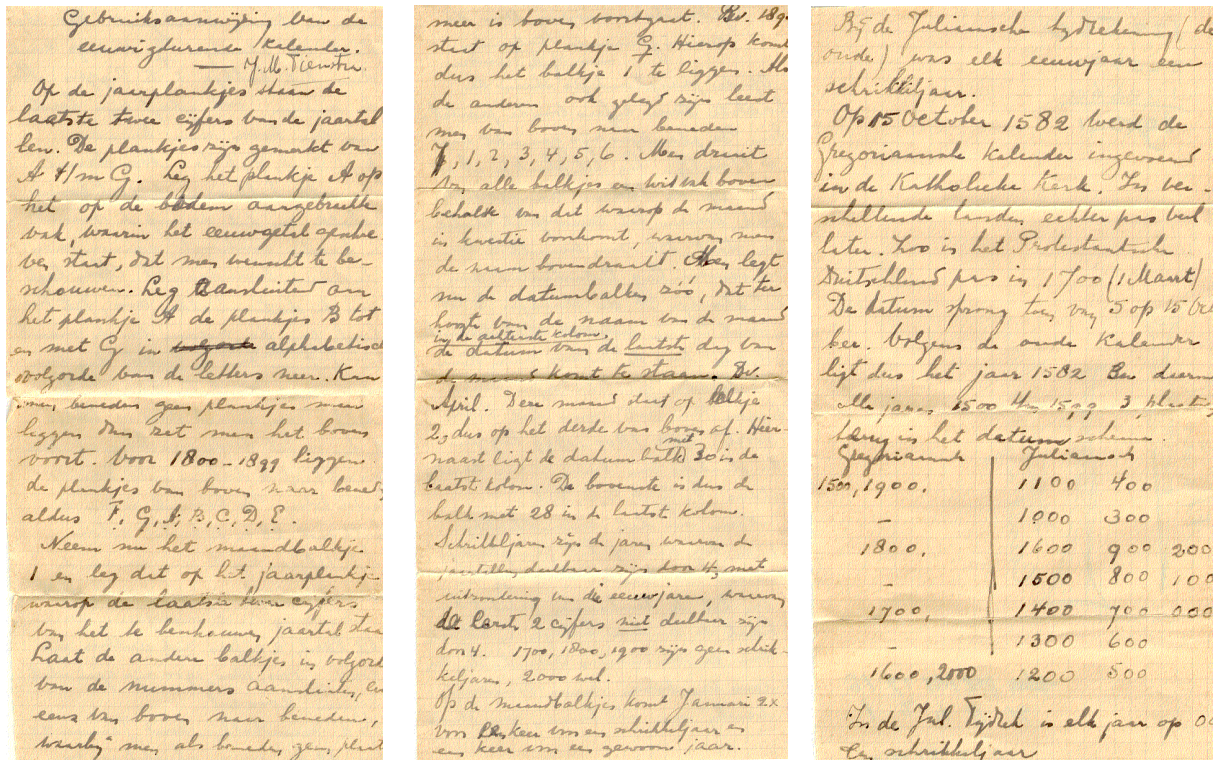 Gebruiksaanwijzing van de
eeuwigdurende kalender.
J. M. Tienstra.
Op de jaarplankjes staan de
laatste twee cijfers van de jaartal
len. De plankjes zijn gemerkt van
A t/m G. Leg het plankje A op
het op de bodem aangebrachte
vak, waarin het eeuwgetal geschre
ven staat, dat men wenscht te be-
schouwen. Leg aansluitend aan
het plankje A de plankjes B tot
en met G in alphabetisch
volgorde van de letters neer. Kan
men beneden geen plankjes meer
leggen dan zet men het boven
voort. Voor 1800-1899 liggen
de plankjes van boven naar bened
aldus F, G, A, B, C, D, E.
Neem nu het maandbalkje
1 en leg dit op het jaarplankje
waarop de laatste twee cijfers
van het te beschouwen jaartal staa
Laat de andere balkjes in volgord
van de nummers aansluiten,
eens van boven naar beneden,
waarbij men als beneden geen plaat
meer is boven voortgaat. Bv. 189
staat op plankje G. Hierop komt
dus het balkje 1 te liggen. Als
de anderen ook gelegd zijn leest
men van boven naar beneden
7, 1, 2, 3, 4, 5, 6. Men draait
van alle balkjes een wit vak boven
behalve van dit waarop de maand
in kwestie voorkomt, waarvan men
de naam bovendraait. Men legt
nu de datumbalken zóó, dat ter
hoogte van de naam van de maand
in de achterste kolom
de datum van de laatste dag van
de maand komt te staan. Bv.
April. Deze maand staat op balkje
2, dus op het derde van boven af. Hier-
met
naast ligt de datumbalk 30 in de
laatst kolom. De bovenste is dus de
balk met 28 in de laatst kolom.
Schrikkeljaren zijn de jaren waarvan de
jaartallen deelbaar zijn door 4, met
uitzondering van die eeuwjaren, waarvan
de eerste 2 cijfers niet deelbaar zijn
door 4. 1700, 1800, 1900 zijn geen schrik-
keljaren, 2000 wel.
Op de maandbalkjes komt Januari 2x
voor een keer voor een schrikkeljaar en
een keer voor een gewoon jaar.
Bij de Juliaansche tijdrekening (de
oude) was elk eeuwjaar een
schrikkeljaar.
Op 15 October 1582 werd de
Gregoriaansche kalender ingevoerd
in de Katholieke Kerk. In ver-
schillende landen echter pas veel
later. Zoo is het Protestantsche
Duitschland pas in 1700 (1 Maart)
De datum sprong toen van 5 op 15 Oct
ber. Volgens de oude kalender
ligt dus het jaar 1582 en daarom
alle jaren 1500 t/m 1599 3 plaats
terug in het datum schema.
Gregoriaansch Juliaansch
1500, 1900. 1100 400
- 1000 300
1800, 1600 900 200
- 1500 800 100
1700, 1400 700 000
- 1300 600
1600, 2000 1200 500
In de Jul. Tijdrek is elk jaar op 00
een schrikkeljaar